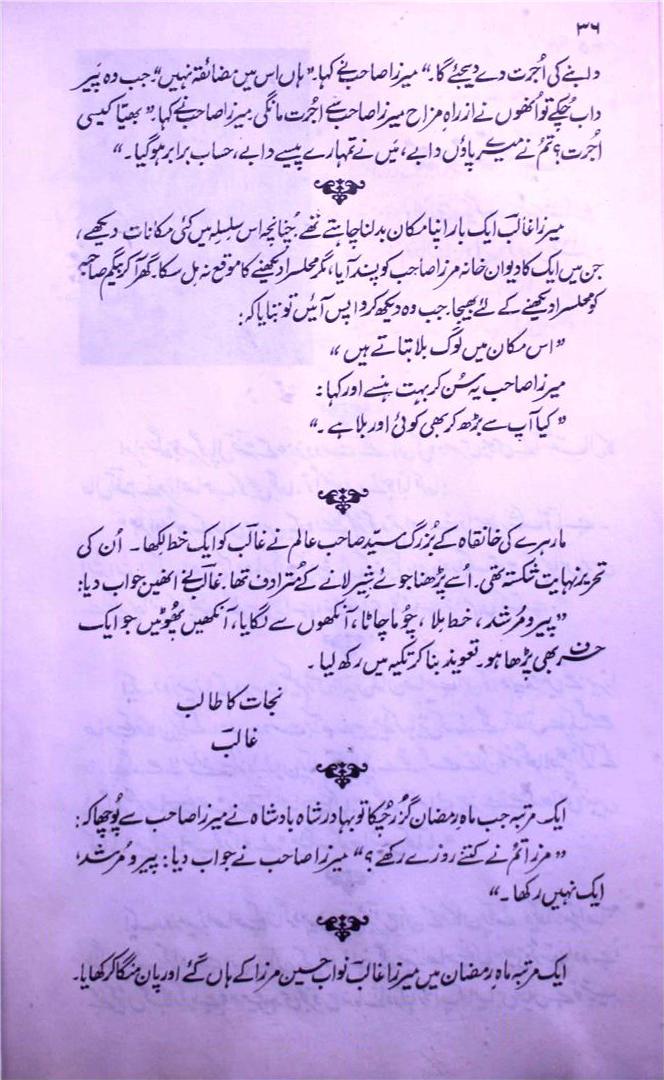 ۳۶
دابنے کی اُجرت دے دیجئے گا۔" میرزا صاحب نے کہا۔ "ہاں اس میں مضائقہ نہیں" جب وہ پَیر
داب چُکے تو اُنھوں نے ازراہِ مزاح میرزا صاحب سے اُجرت مانگی۔ میرزا صاحب نے کہا۔ "بھیّا کیسی
اُجرت؟ تُم نے میرے پاؤں دابے، مَیں نے تمہارے پیسے دابے، حساب برابر ہوگیا۔"
میرزا غالبؔ ایک بار اپنا مکان بدلنا چاہتے تھے۔ چُنانچہ اس سلسلہ میں کئی مکانات دیکھے،
جن میں ایک کا دیوان خانہ مرزا صاحب کو پسند آیا، مگر محلسرا دیکھنے کا موقع نہ مل سکا۔ گھر آکر بیگم صاحبہ
کو محلسرا دیکھنے کے لئے بھیجا۔ جب وہ دیکھ کر واپس آئیں تو بتایا کہ:
"اس مکان میں لوگ بلا بتاتے ہیں"
میرزا صاحب یہ سُن کر بہت ہنسے اور کہا:
"کیا آپ سے بڑھ کر بھی کوئی اور بلا ہے۔"
مارہرے کی خانقاہ کے بُزرگ سید صاحب عالم نے غالبؔ کو ایک خط لکھا۔ اُن کی
تحریر نہایت شکستہ تھی۔ اُسے پڑھنا جوئے شیر لانے کے مُترادف تھا۔ غالبؔ نے انھیں جواب دیا:
"پیر و مُرشد، خط ملا، چُوما چاٹا، آنکھوں سے لگایا، آنکھیں پھُوٹیں جو ایک
حرف بھی پڑھا ہو۔ تعویذ بنا کر تکیہ میں رکھ لیا۔
نجات کا طالب
غالبؔ
ایک مرتبہ جب ماہ رمضان گزُر چُکا تو بہادر شاہ بادشاہ نے میرزا صاحب سے پُوچھا کہ:
"مرزا تُم نے کتنے روزے رکھے؟" میرزا صاحب نے جواب دیا: پیر و مُرشد،
ایک نہیں رکھا۔"
ایک مرتبہ ماہ رمضان میں میرزا غالبؔ نواب حسین مرزا کے ہاں گئے اور پان منگا کر کھایا۔